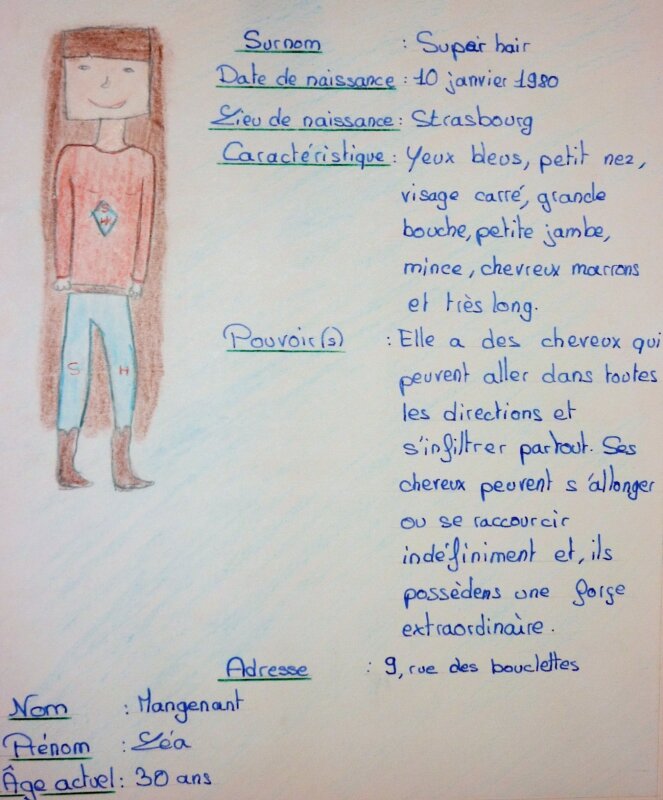 Surnom : Super hair
Date de naissance : 10 janvier 1980
Lieu de naissance : Strasbourg
Caractéristique : Yeux bleus, petit nez,
visage carré, grande
bouche, petite jambe,
mince, cheveux marrons
et très long.
Pouvoir(s) : Elle a des cheveux qui
peuvent aller dans toutes
les directions et
s'infiltrer partout. Ses
cheveux peuvent s'allonger
ou se raccourcir
indéfiniment et, ils
possèdens une forge
extraordinaire.
Adresse : 9, rue des bouclettes
Nom : Mangenant
Prénom : Léa
Âge actuel : 30 ans
S
H
S H